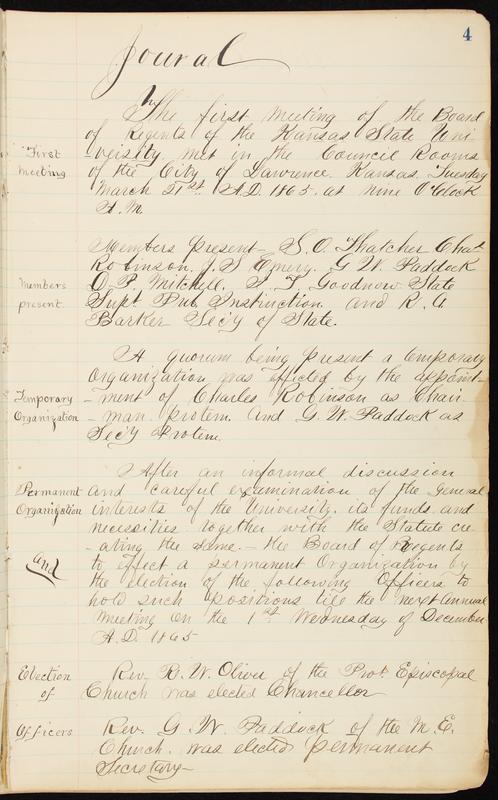 4
Joural
The first meeting of the Board
of Regents of the Kansas State Uni
First
-versity met in the Council Rooms
Meeting
of the City of Lawrence. Kansas. Tuesday
March 21st A.D. 1865. at nine O'Clock
A.M.
Members present- S.O. Thatcher Chas
Robinson. J.S Emery. G W. Paddock
Members
O-P. Mitchell. I. T. Goodnow State
present.
Supt Pub Instruction. and R. A
Barker Sec'y of State.
A quorum being present a temporary
Organization was effected by the appoint-
Temporary
-ment of Charles Robinson as Chair-
Organization
-man protem. and G.W. Paddock as
Sec'y Protem.
After an informal discussion
Permanent
and careful examination of the general
Organization
interests of the University. its funds and
necessities together with the Statute cre
-ating the same.- the Board of Regents
And
to effect a permanent Organization by
the election of the following Officers to
hold such positions till the next annual
meeting on the 1st Wednesday of December
A.D. 1865
Election
Rev. R. W. Oliver of the Prot. Episcopal
of
Church was elected Chancellor
Officers
Rev. G. W. Paddock of the M.E.
Church. was elected permanent
Secretary-